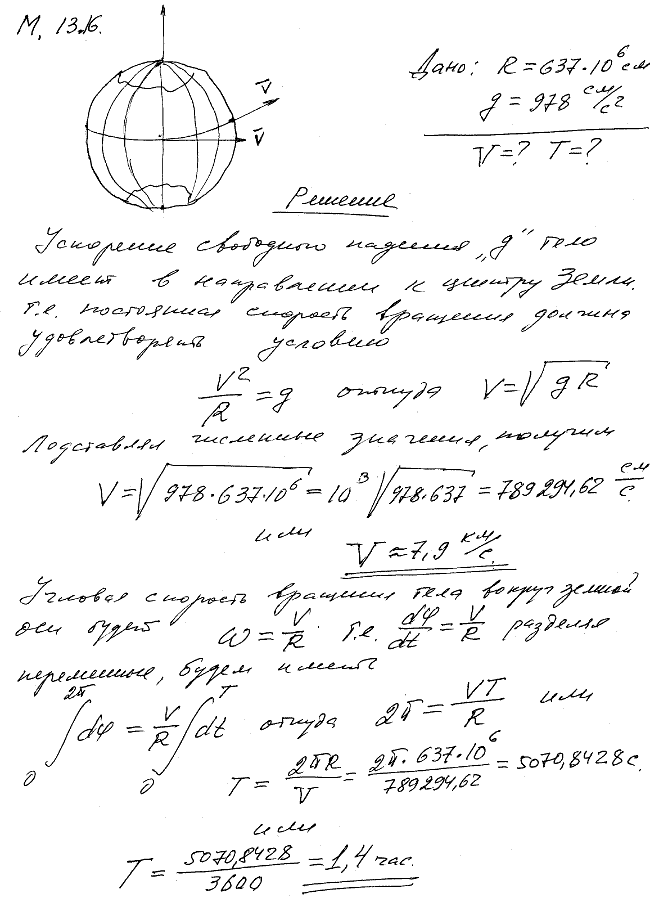 М, 13.16.
Дано: R = 637·10⁶ см
g = 978 см/с²
V = ? T = ?
V̄
V̄
Решение
Ускорение свободного падения „g" тело
имеет в направлении к центру Земли.
т.е. постоянная скорость вращения должна
удовлетворять условию
V²/R = g откуда V = √gR
Подставляя численные значения, получим
V = √978·637·10⁶ = 10³ √978·637 = 789294,62 см/с
или
V ≈ 7,9 км/с.
Угловая скорость вращения тела вокруг земной
оси будет ω = V/R т.е. dφ/dt = V/R разделяя
переменные, будем иметь
∫₀^2π dφ = V/R ∫₀^T dt откуда 2π = VT/R или
T = 2πR/V = 2π·637·10⁶/789294,62 = 5070,8428 с.
или
T = 5070,8428/3600 = 1,4 час.